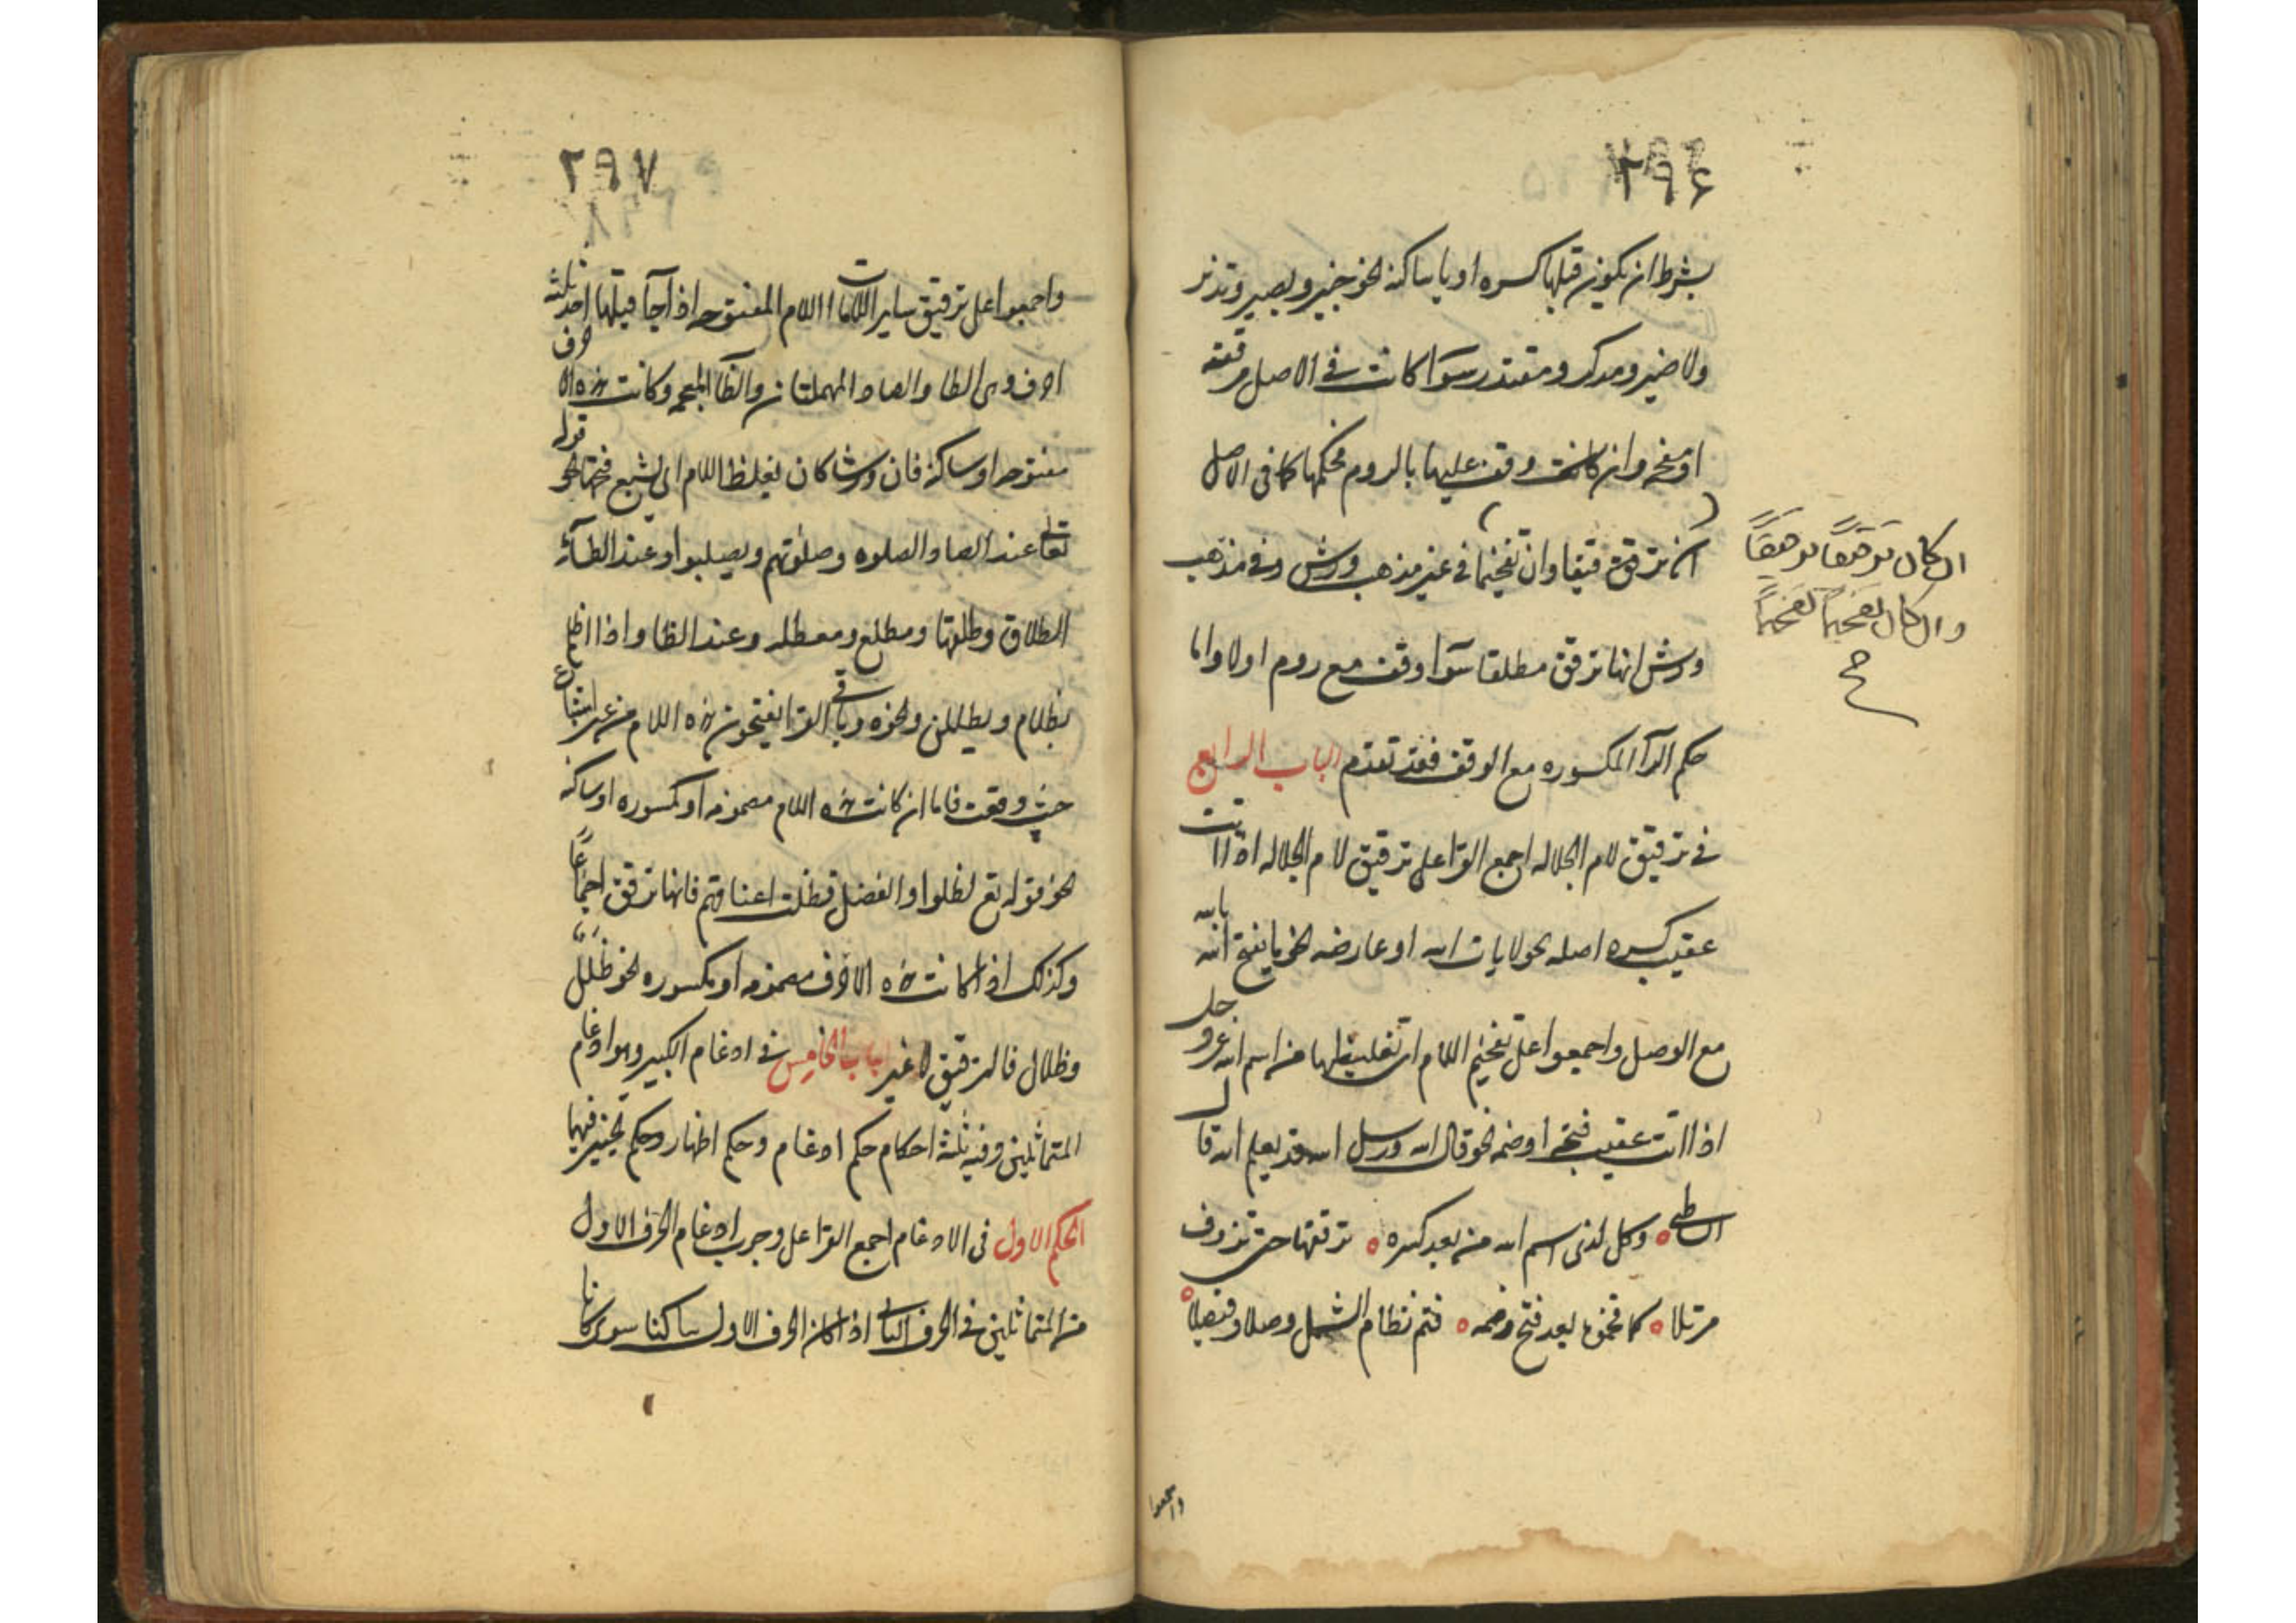 ٢٩٦
بشرط ان يكون قبلها كسره او يا ساكنه نحو خبير وبصير ونذير
ولا ضير ومدكر ومقتدر سوآ كانت فى الاصل مرققه
او مفخمه وان كانت وقف عليها بالروم فحكمها كما فى الاصل
ان ترقق ترقيقا وان تفخيما فى غير مذهب ورش وفى مذهب
ورش انها ترقق مطلقا سوآ وقف مع روم اولا واما
حكم الرآ المكسوره مع الوقف فقد تقدم الباب الرابع
فى ترقيق لام الجلاله اجمع القرا على ترقيق لام الجلاله اذا اتت
عقيب كسره اصله نحو لايات الله او عارضه نحو ما يفتح الله بالله
مع الوصل واجمعوا على تفخيم اللام اى تغليظها من اسم الله عز و جل
اذا اتت عقيب فتحه او ضمه نحو قال الله ورسل الله وقد يعلم الله قال
الشاطبى وكل لدى اسم الله من بعد كسره ترققها حتى تروق
مرتلا كما فخموه بعد فتح وضمه فتم نظام الشمل وصلا وفيصلا
ان كان ترقيقا ترقيقاً
وان كان تفخيماً تفخيماً
واجمعوا
٢٩٧
واجمعوا على ترقيق ساير اللامات الا اللام المفتوحه اذا جآ قبلها احد ثلثه
احرف وهى الطا والصاد المهملتان والظآ المعجمه وكانت هذه الاحرف
مفتوحه او ساكنه فان ورشا كان يغلظ اللام اى يشبع فتحتها نحو قوله
تعالى عند الصاد الصلوه وصلوتهم ويصلبوا وعند الطآء
الطلاق وطلقها ومطلع ومعطله وعند الظا واذا اظلم
بظلام ويظللن ونحوه وباقى القرا يفتحون هذه اللام من غير اشباع
حيث وقعت فاما ان كانت هذه اللام مضمومه او مكسوره او ساكنه
نحو قوله تع لظلوا والفضل فظلت اعناقهم فانها ترقق اجماعاً
وكذلك اذا كانت هذه الاحرف مضمومه او مكسوره نحو ظلل
وظلال فالترقيق لا غير الباب الخامس فى ادغام الكبير وهو ادغام
المتماثلين وفيه ثلثة احكام حكم ادغام وحكم اظهار وحكم تخيير فيهما
الحكم الاول فى الادغام اجمع القرا على وجوب ادغام الحرف الاول
من المتماثلين فى الحرف الثانى اذا كان الحرف الاول ساكنا سوى كانا